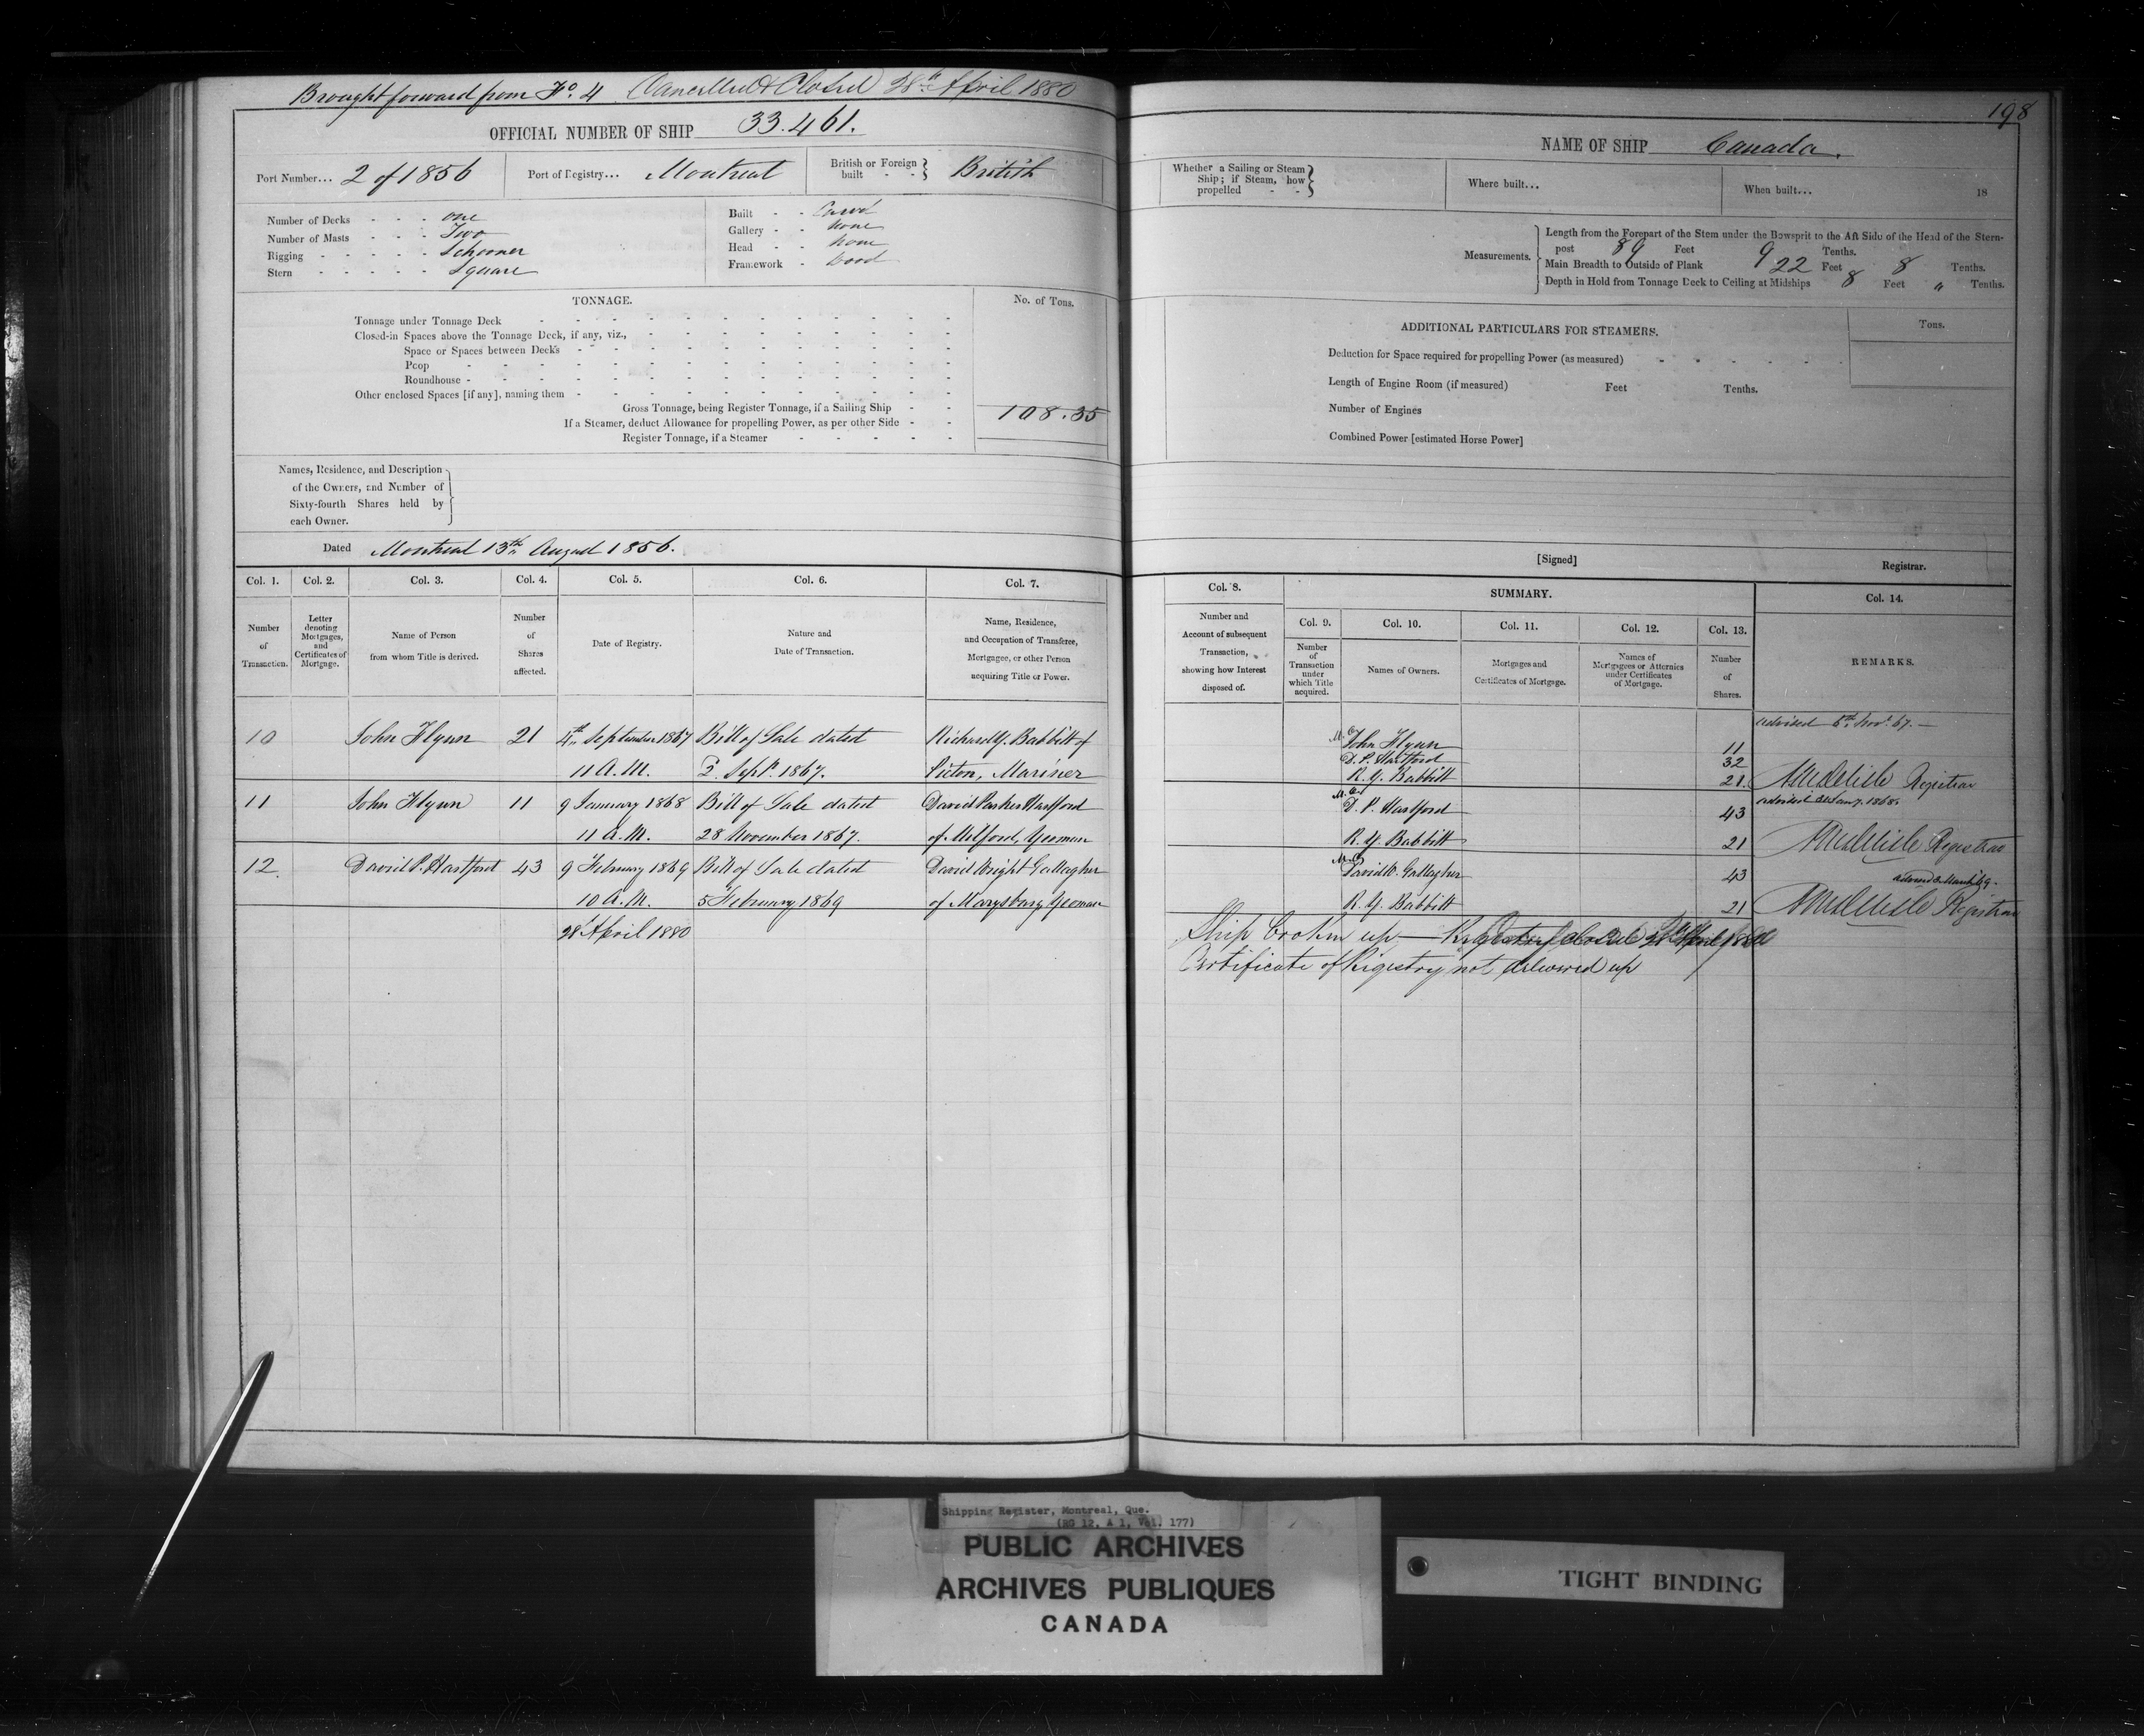 Brought forward from Fo. 4 Cancelled & Closed 28th April 1880
198
OFFICIAL NUMBER OF SHIP 33.461.
NAME OF SHIP Canada.
Port Number... 2 of 1856 Port of Registry... Montreal British or Foreign built - - } British
Whether a Sailing or Steam Ship; if Steam, how propelled - - }
Where built... When built... 18
Number of Decks - - - one
Number of Masts - - - Two
Rigging - - - - - Schooner
Stern - - - - - Square
Built - - Carvel
Gallery - - None
Head - - None
Framework - Wood
Measurements.
Length from the Forepart of the Stem under the Bowsprit to the Aft Side of the Head of the Stern-
post 89 Feet 9 Tenths.
Main Breadth to Outside of Plank 22 Feet 8 Tenths.
Depth in Hold from Tonnage Deck to Ceiling at Midships 8 Feet " Tenths.
TONNAGE. No. of Tons.
Tonnage under Tonnage Deck
Closed-in Spaces above the Tonnage Deck, if any, viz.,
Space or Spaces between Decks
Poop
Roundhouse
Other enclosed Spaces [if any], naming them
Gross Tonnage, being Register Tonnage, if a Sailing Ship 108.35
If a Steamer, deduct Allowance for propelling Power, as per other Side
Register Tonnage, if a Steamer
ADDITIONAL PARTICULARS FOR STEAMERS. Tons.
Deduction for Space required for propelling Power (as measured)
Length of Engine Room (if measured) Feet Tenths.
Number of Engines
Combined Power [estimated Horse Power]
Names, Residence, and Description
of the Owners, and Number of
Sixty-fourth Shares held by
each Owner.
Dated Montreal 13th August 1856.
[Signed] Registrar.
Col. 1. Col. 2. Col. 3. Col. 4. Col. 5. Col. 6. Col. 7.
Number of Transaction.
Letter denoting Mortgages, and Certificates of Mortgage.
Name of Person from whom Title is derived.
Number of Shares affected.
Date of Registry.
Nature and Date of Transaction.
Name, Residence, and Occupation of Transferee, Mortgagee, or other Person acquiring Title or Power.
Col. 8. SUMMARY. Col. 14.
Number and Account of subsequent Transaction, showing how Interest disposed of.
Col. 9. Col. 10. Col. 11. Col. 12. Col. 13.
Number of Transaction under which Title acquired.
Names of Owners.
Mortgages and Certificates of Mortgage.
Names of Mortgagees or Attornies under Certificates of Mortgage.
Number of Shares.
REMARKS.
10 John Flynn 21 4th September 1867 Bill of Sale dated Richard Y. Babbitt of
11 A.M. 2. Sept. 1867. Picton, Mariner
11 John Flynn 11 9 January 1868 Bill of Sale dated David Parker Hartford
11 A.M. 28 November 1867. of Milford, Yeoman
12. David P. Hartford 43 9 February 1869 Bill of Sale dated David Wright Gallagher
10 A.M. 5 February 1869 of Marysburg Yeoman
28 April 1880
advised 6th Nov. 67.
John Flynn 11
D. P. Hartford 32
R. Y. Babbitt 21. Registrar
advised Jany. 1868.
D. P. Hartford 43
R. Y. Babbitt 21 Registrar
David W. Gallagher 43 advised March 69.
R. Y. Babbitt 21 Registrar
Ship broken up — Registry closed 28 April 1880
Certificate of Registry not delivered up
Shipping Register, Montreal, Que.
(RG 12, A 1, Vol. 177)
PUBLIC ARCHIVES
ARCHIVES PUBLIQUES
CANADA
TIGHT BINDING